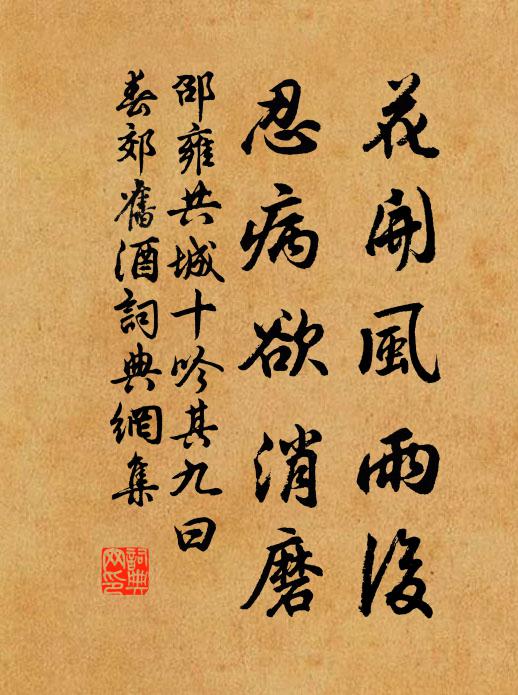 花開風雨後
忍病欲消磨
邵雍共城十吟其九曰
春郊舊酒詞典網集
詞典網印